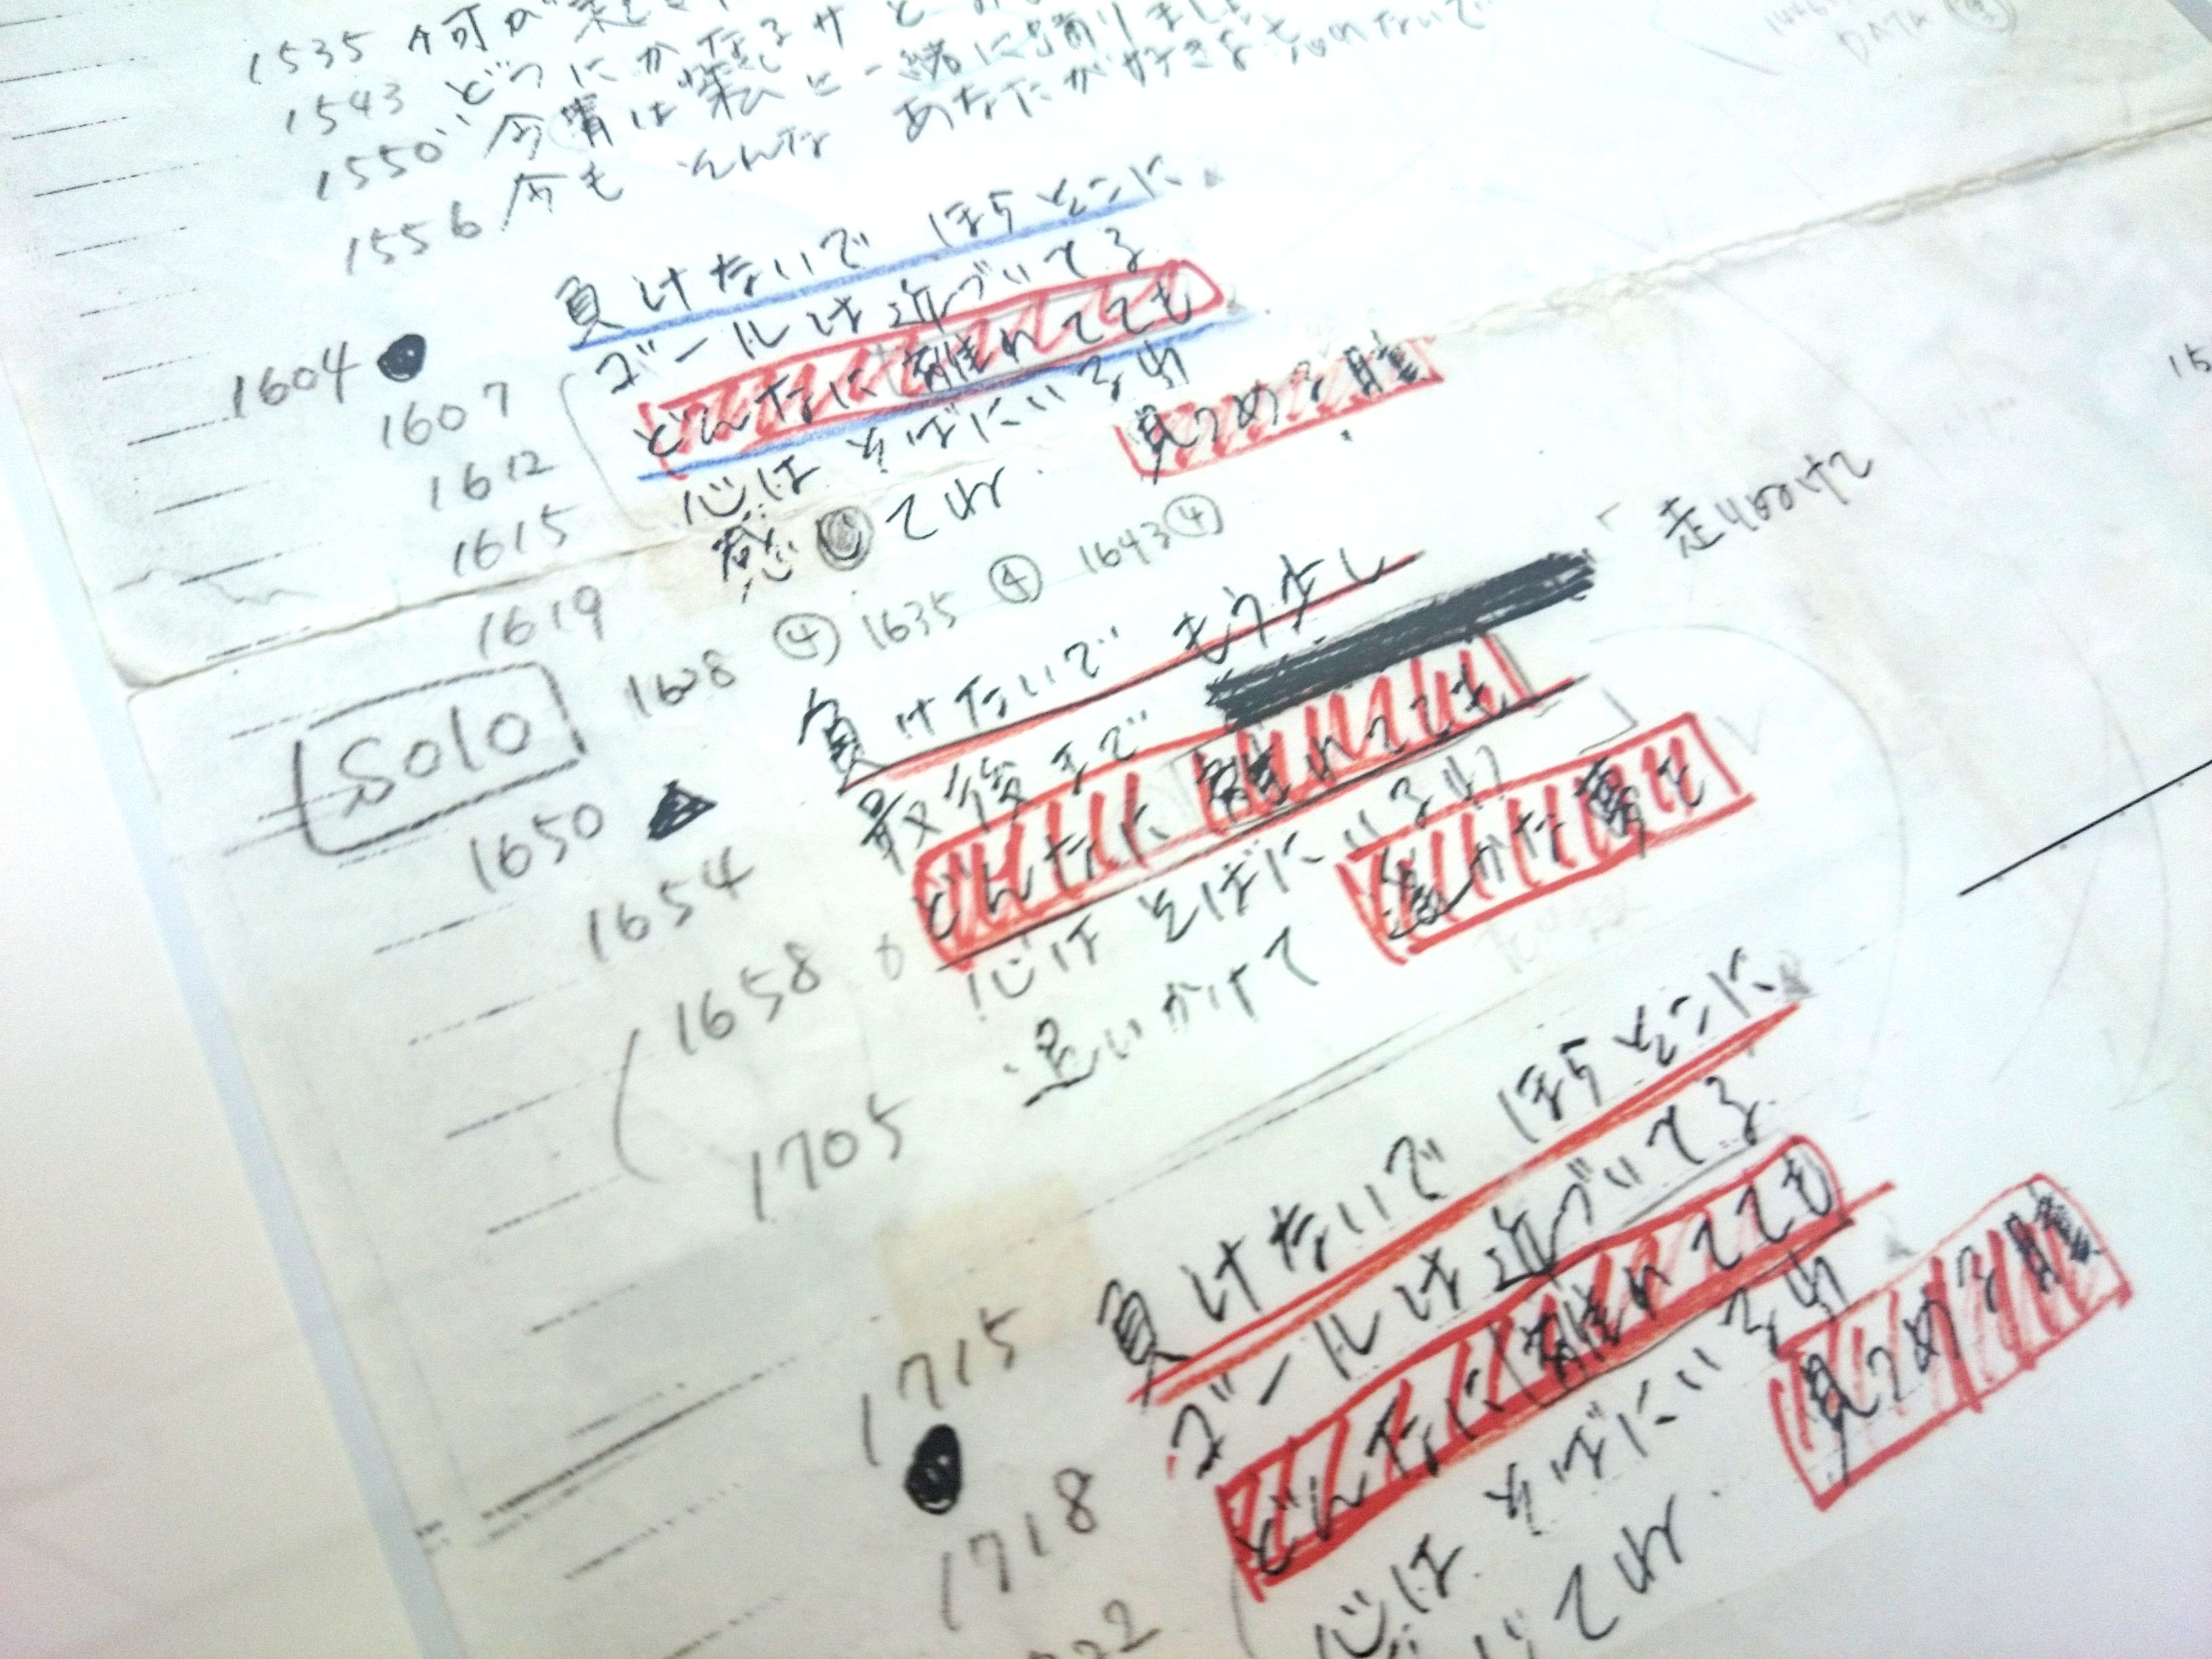 1535 何が
1543 どうにかなるサと
1550 今宵は私と一緒に踊りまし
1556 今も そんな あなたが好きよ 忘れないで
DATA
負けないで ほらそこに
1604 ゴールは近づいてる
1607 どんなに 離れてても
1612 心は そばにいるわ
1615 感 てね 見つめる瞳
1619 1628 ④ 1635 ④ 1643 ④
Solo
負けないで もう少し
1650 最後まで 走りぬけて
1654 どんなに 離れてても
1658 心は そばにいるわ
1705 追いかけて 遥かな夢を
負けないで ほらそこに
1715 ゴールは近づいてる
1718 どんなに 離れてても
心は そばにいるわ
てね 見つめる瞳
15